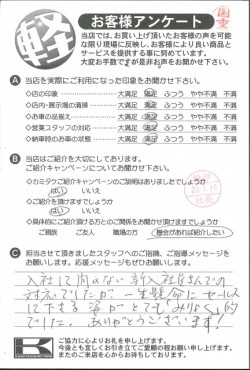 軽
お客様アンケート
当店では、お買い上げ頂いたお客様の声を可能
な限り現場に反映し、お客様により良い商品と
サービスを提供する事に努めています。
大変お手数ですが是非お声をお聞かせ下さい。
A 当店を実際にご利用になった印象をお聞かせ下さい。
◇店の印象 大満足 満足 ふつう やや不満 不満
◇店内・展示場の清掃 大満足 満足 ふつう やや不満 不満
◇お車の品揃え 大満足 満足 ふつう やや不満 不満
◇営業スタッフの対応 大満足 満足 ふつう やや不満 不満
◇納車時のお車の状態 大満足 満足 ふつう やや不満 不満
B 当店はご紹介を大切にしております。
ご紹介キャンペーンについてお聞かせ下さい。
◇カミタケご紹介キャンペーンのご説明はありましたでしょうか
はい いいえ
◇ご紹介を頂けますでしょうか
はい いいえ
◇具体的にご紹介頂ける方とのご関係をお聞かせ頂けますでしょうか
ご親族 ご友人 職場の方 機会があれば紹介したい
C 担当させて頂きましたスタッフへのご指摘、ご指導メッセージを
お願いします。応援メッセージもぜひお願いします。
入社して間のない新入社員さんでの
対応でしたが、一生懸命にセールス
して下さる姿がとても
でした。ありがとうございます！
K
ご協力に心よりお礼を申し上げます。
今後とも宜しくお引き立てご愛顧の程お願い申し上げます。
またのご来店を心からお待ちしております。